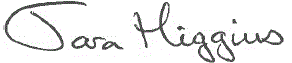 Tara Higgins